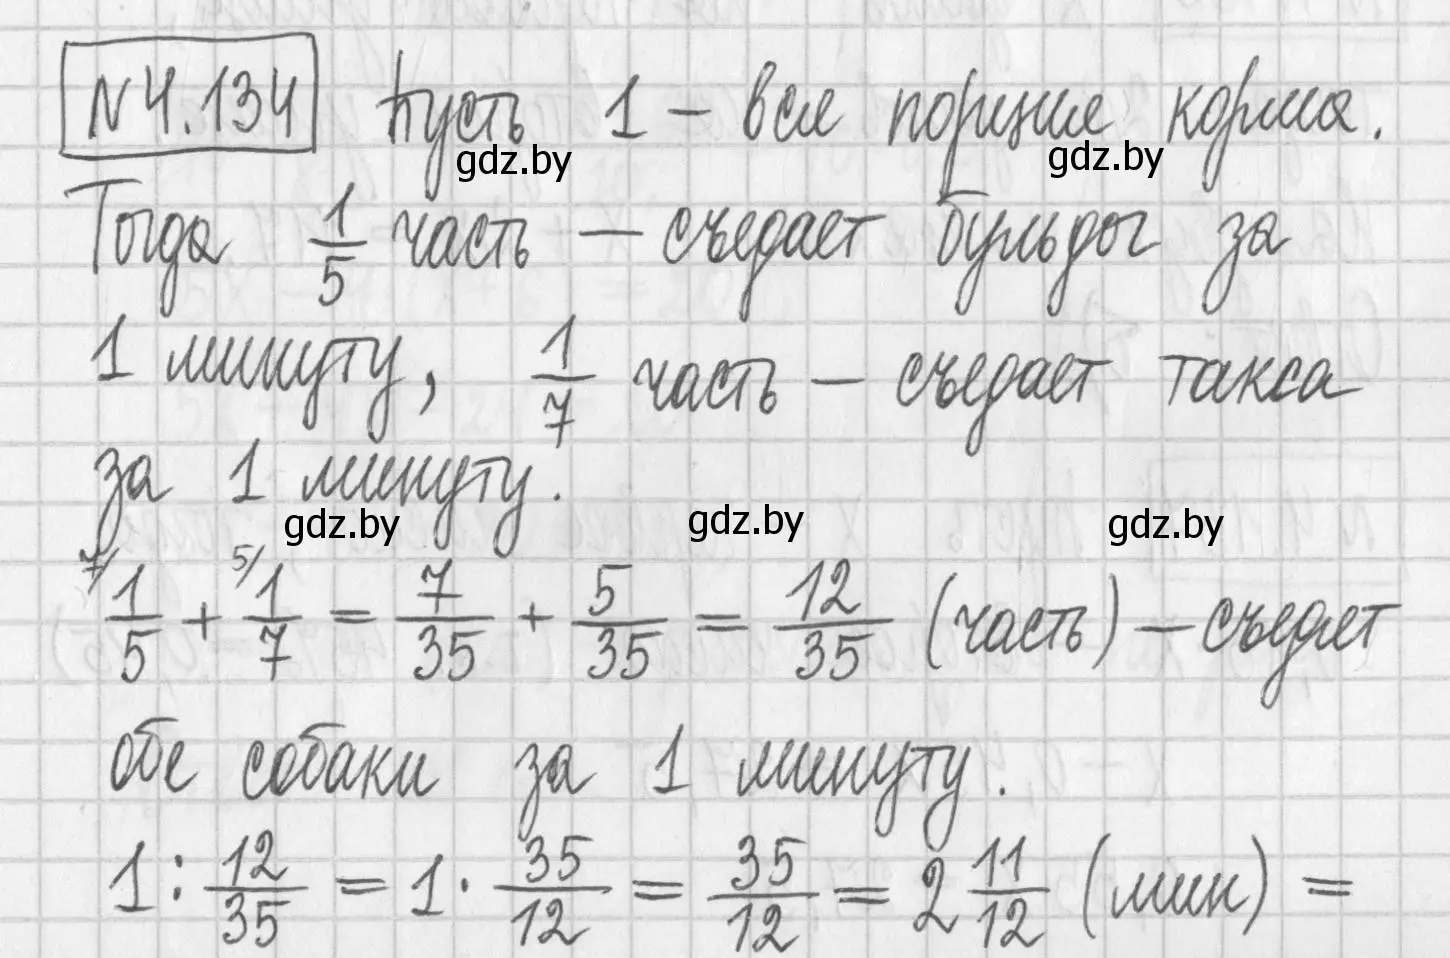 №4.134 Пусть 1 – вся порция корма.
gdz.by gdz.by
Тогда 1/5 часть – съедает бульдог за
1 минуту, 1/7 часть – съедает такса
за 1 минуту.
gdz.by gdz.by gdz.by
7/ 1/5 + 5/ 1/7 = 7/35 + 5/35 = 12/35 (часть) – съедят
обе собаки за 1 минуту.
1 : 12/35 = 1 · 35/12 = 35/12 = 2 11/12 (мин) =